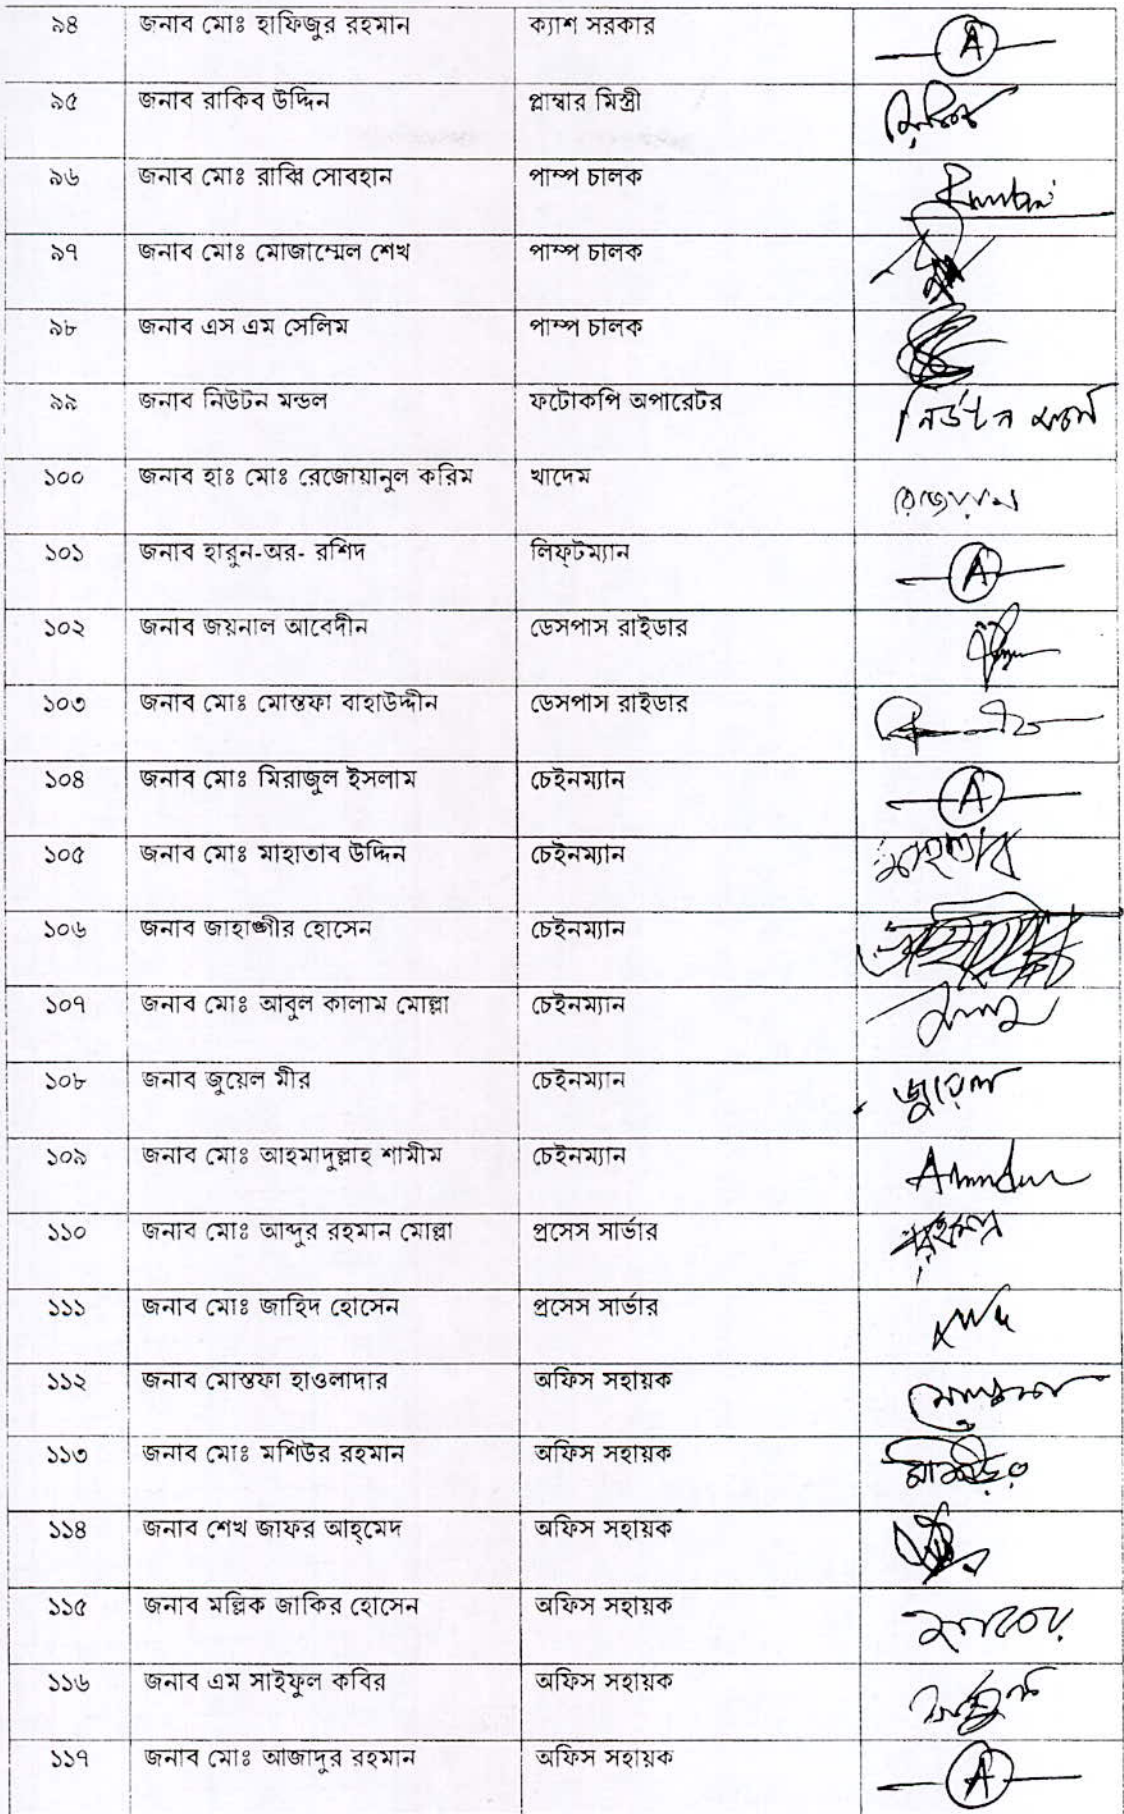 ৯৪ জনাব মোঃ হাফিজুর রহমান ক্যাশ সরকার A
৯৫ জনাব রাকিব উদ্দিন প্লাম্বার মিস্ত্রী
৯৬ জনাব মোঃ রাব্বি সোবহান পাম্প চালক
৯৭ জনাব মোঃ মোজাম্মেল শেখ পাম্প চালক
৯৮ জনাব এস এম সেলিম পাম্প চালক
৯৯ জনাব নিউটন মন্ডল ফটোকপি অপারেটর
১০০ জনাব হাঃ মোঃ রেজোয়ানুল করিম খাদেম
১০১ জনাব হারুন-অর- রশিদ লিফ্‌টম্যান A
১০২ জনাব জয়নাল আবেদীন ডেসপাস রাইডার
১০৩ জনাব মোঃ মোস্তফা বাহাউদ্দীন ডেসপাস রাইডার
১০৪ জনাব মোঃ মিরাজুল ইসলাম চেইনম্যান A
১০৫ জনাব মোঃ মাহাতাব উদ্দিন চেইনম্যান মাহতাব
১০৬ জনাব জাহাঙ্গীর হোসেন চেইনম্যান
১০৭ জনাব মোঃ আবুল কালাম মোল্লা চেইনম্যান
১০৮ জনাব জুয়েল মীর চেইনম্যান জুয়েল
১০৯ জনাব মোঃ আহমাদুল্লাহ শামীম চেইনম্যান
১১০ জনাব মোঃ আব্দুর রহমান মোল্লা প্রসেস সার্ভার
১১১ জনাব মোঃ জাহিদ হোসেন প্রসেস সার্ভার
১১২ জনাব মোস্তফা হাওলাদার অফিস সহায়ক
১১৩ জনাব মোঃ মশিউর রহমান অফিস সহায়ক
১১৪ জনাব শেখ জাফর আহ্‌মেদ অফিস সহায়ক
১১৫ জনাব মল্লিক জাকির হোসেন অফিস সহায়ক
১১৬ জনাব এম সাইফুল কবির অফিস সহায়ক
১১৭ জনাব মোঃ আজাদুর রহমান অফিস সহায়ক A